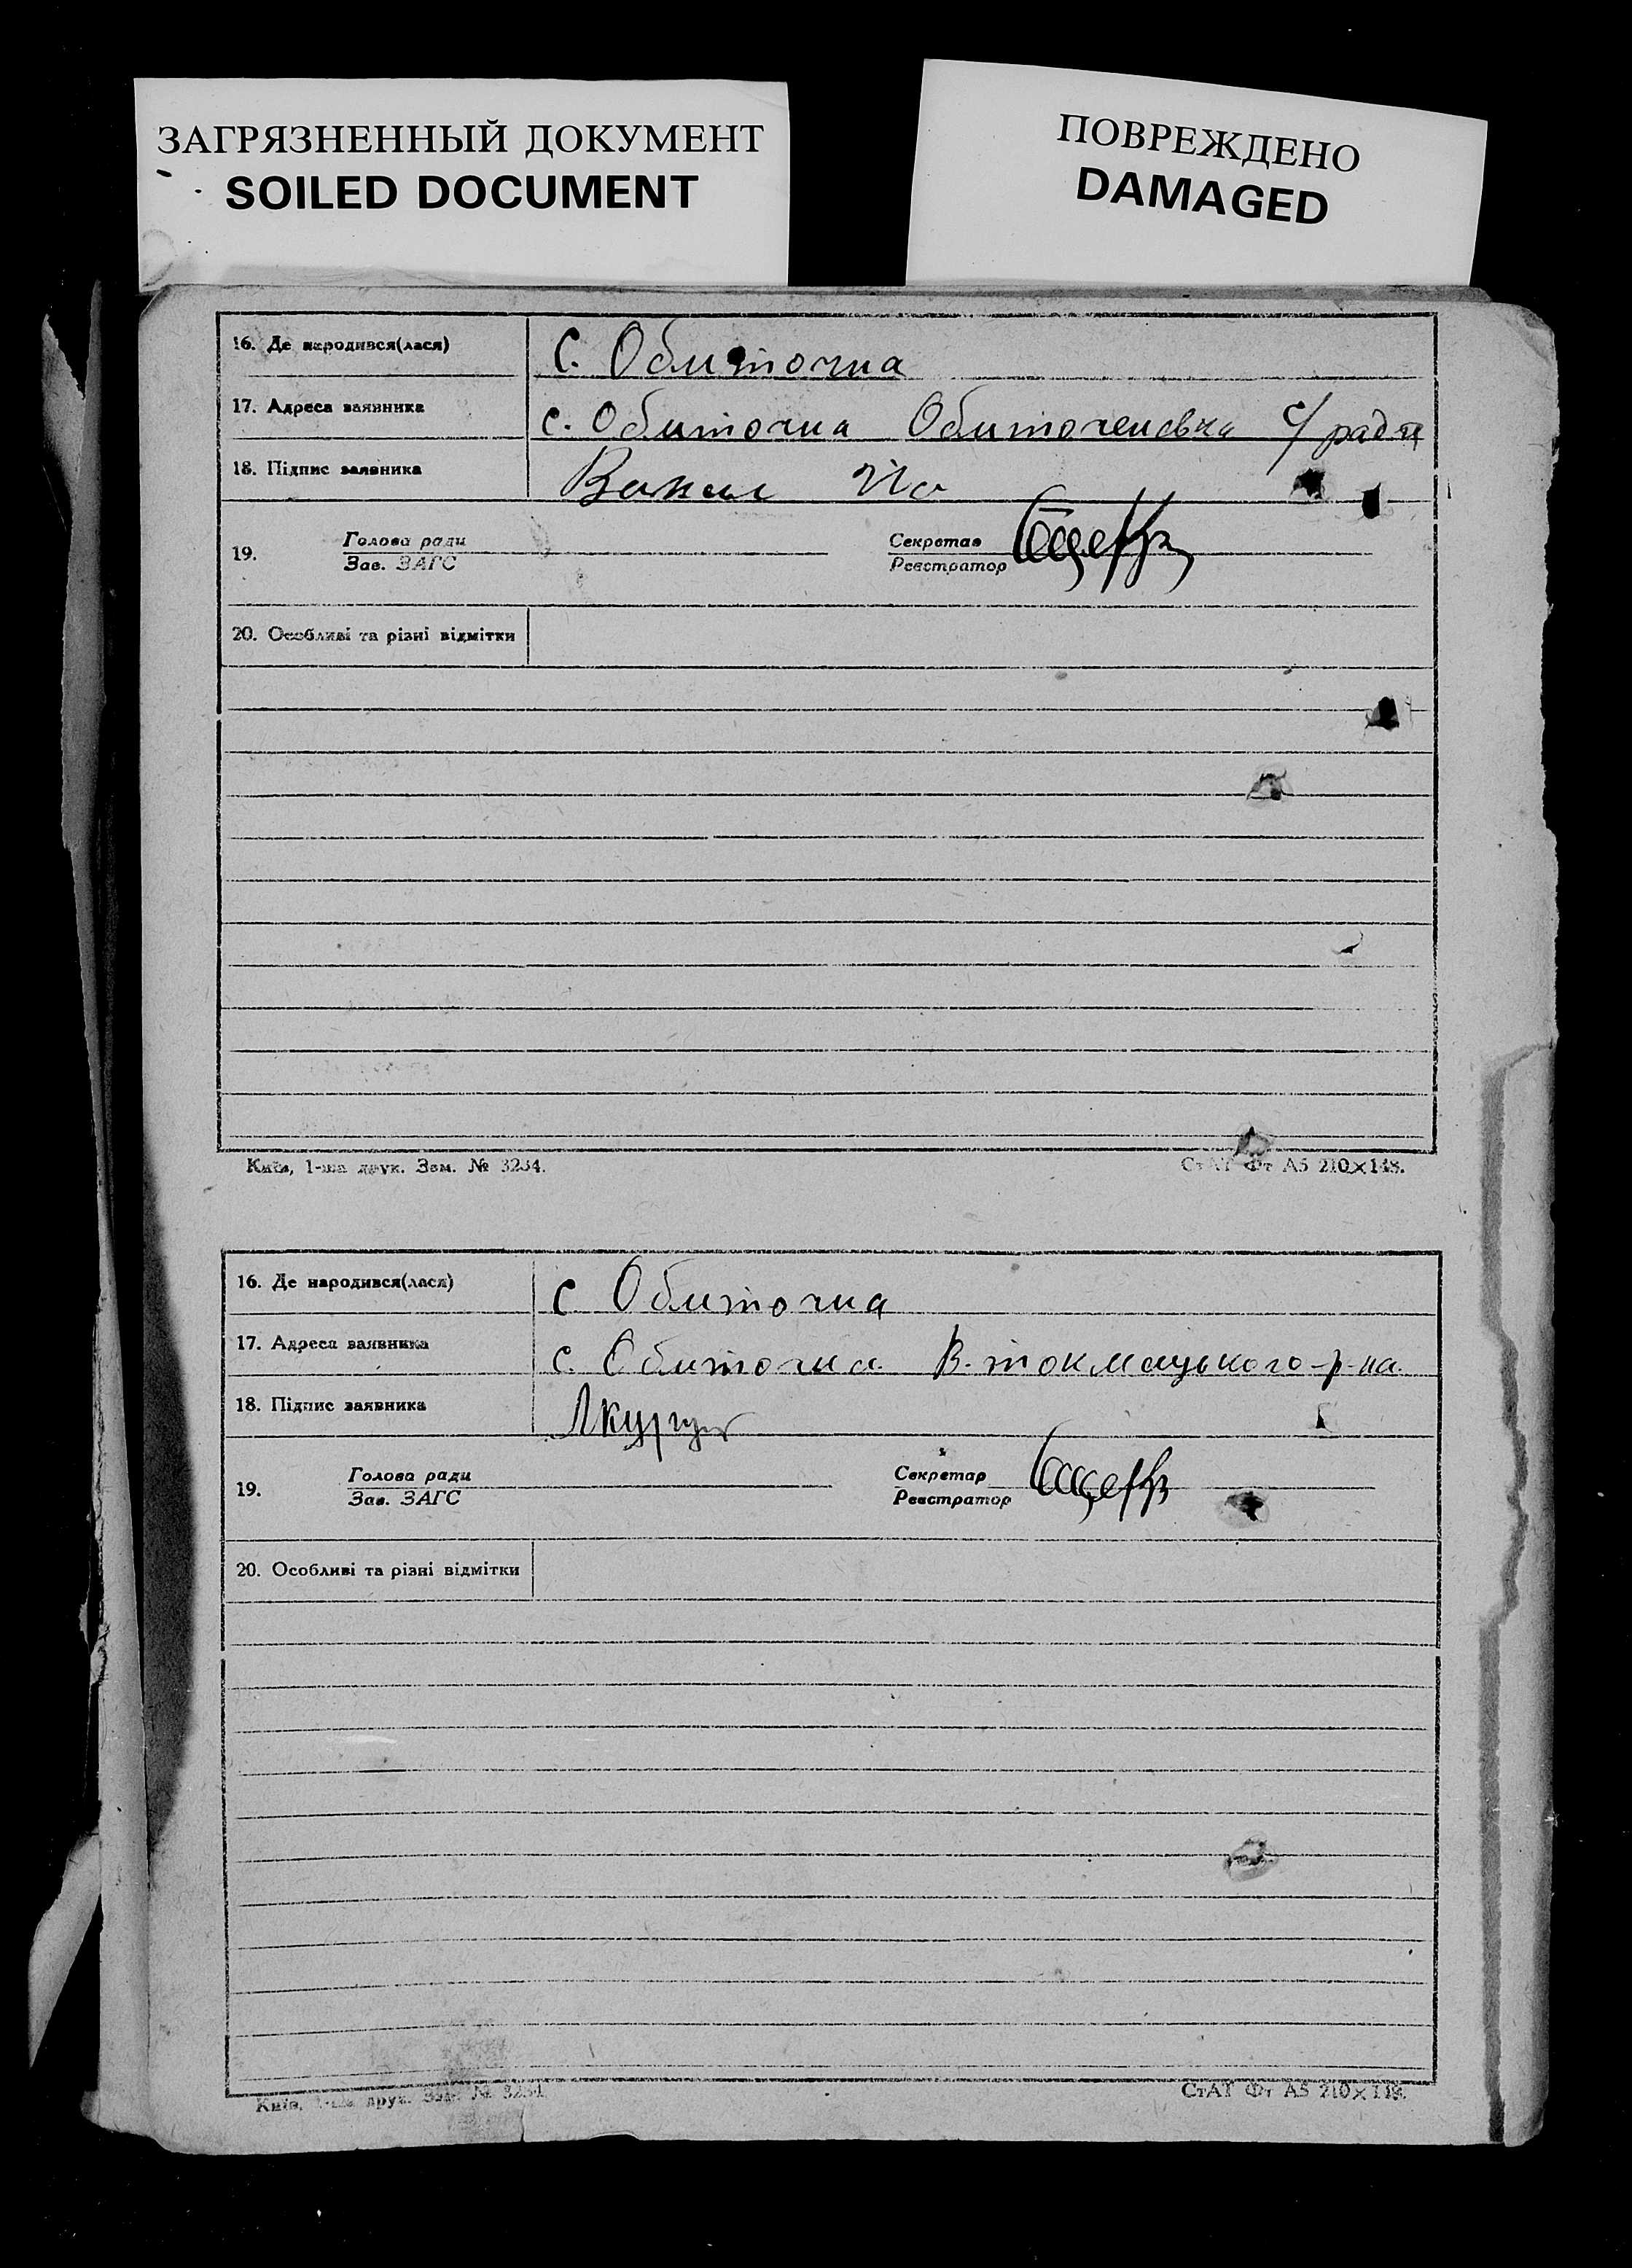 ЗАГРЯЗНЕННЫЙ ДОКУМЕНТ
SOILED DOCUMENT
ПОВРЕЖДЕНО
DAMAGED
16. Де народився(лася) с. Обиточна
17. Адреса заявника с. Обиточна Обиточенська с/рада
18. Підпис заявника
19. Голова ради
Зав. ЗАГС
Секретар
Реєстратор
20. Особливі та різні відмітки
Київ, 1-ша друк. Зам. № 3234.
СтАТ Фт А5 210×148.
16. Де народився(лася) с Обиточна
17. Адреса заявника с. Обиточна В-токмацького р-на.
18. Підпис заявника
19. Голова ради
Зав. ЗАГС
Секретар
Реєстратор
20. Особливі та різні відмітки
Київ, 1-ша друк. Зам. № 3234
СтАТ Фт А5 210×148.